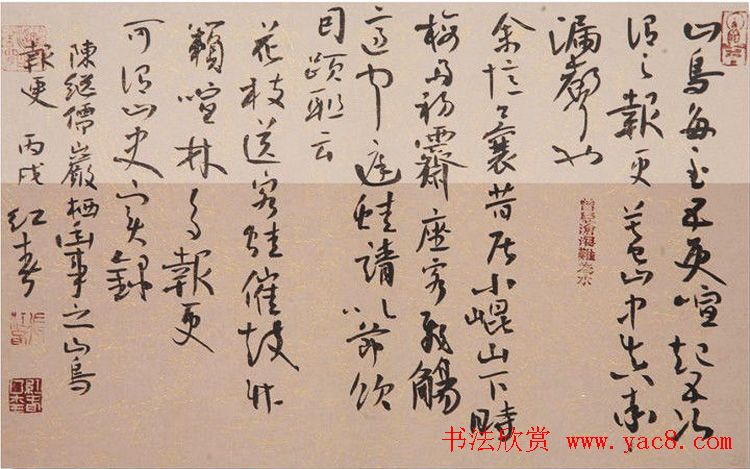 山鳥每至五更喧起五次
謂之報更蓋山中真率
漏聲也
余憶曩昔居小崐山下時
梅雨初霽座客飛觴
適聞庭蛙請以節飲
因題聯云
花枝送客蛙催鼓竹
籟喧林鳥報更
可謂山史實錄
陳繼儒巖栖幽事之山鳥
報更 丙戌 红春
曾經滄海難為水
书法欣赏 www.yac8.com